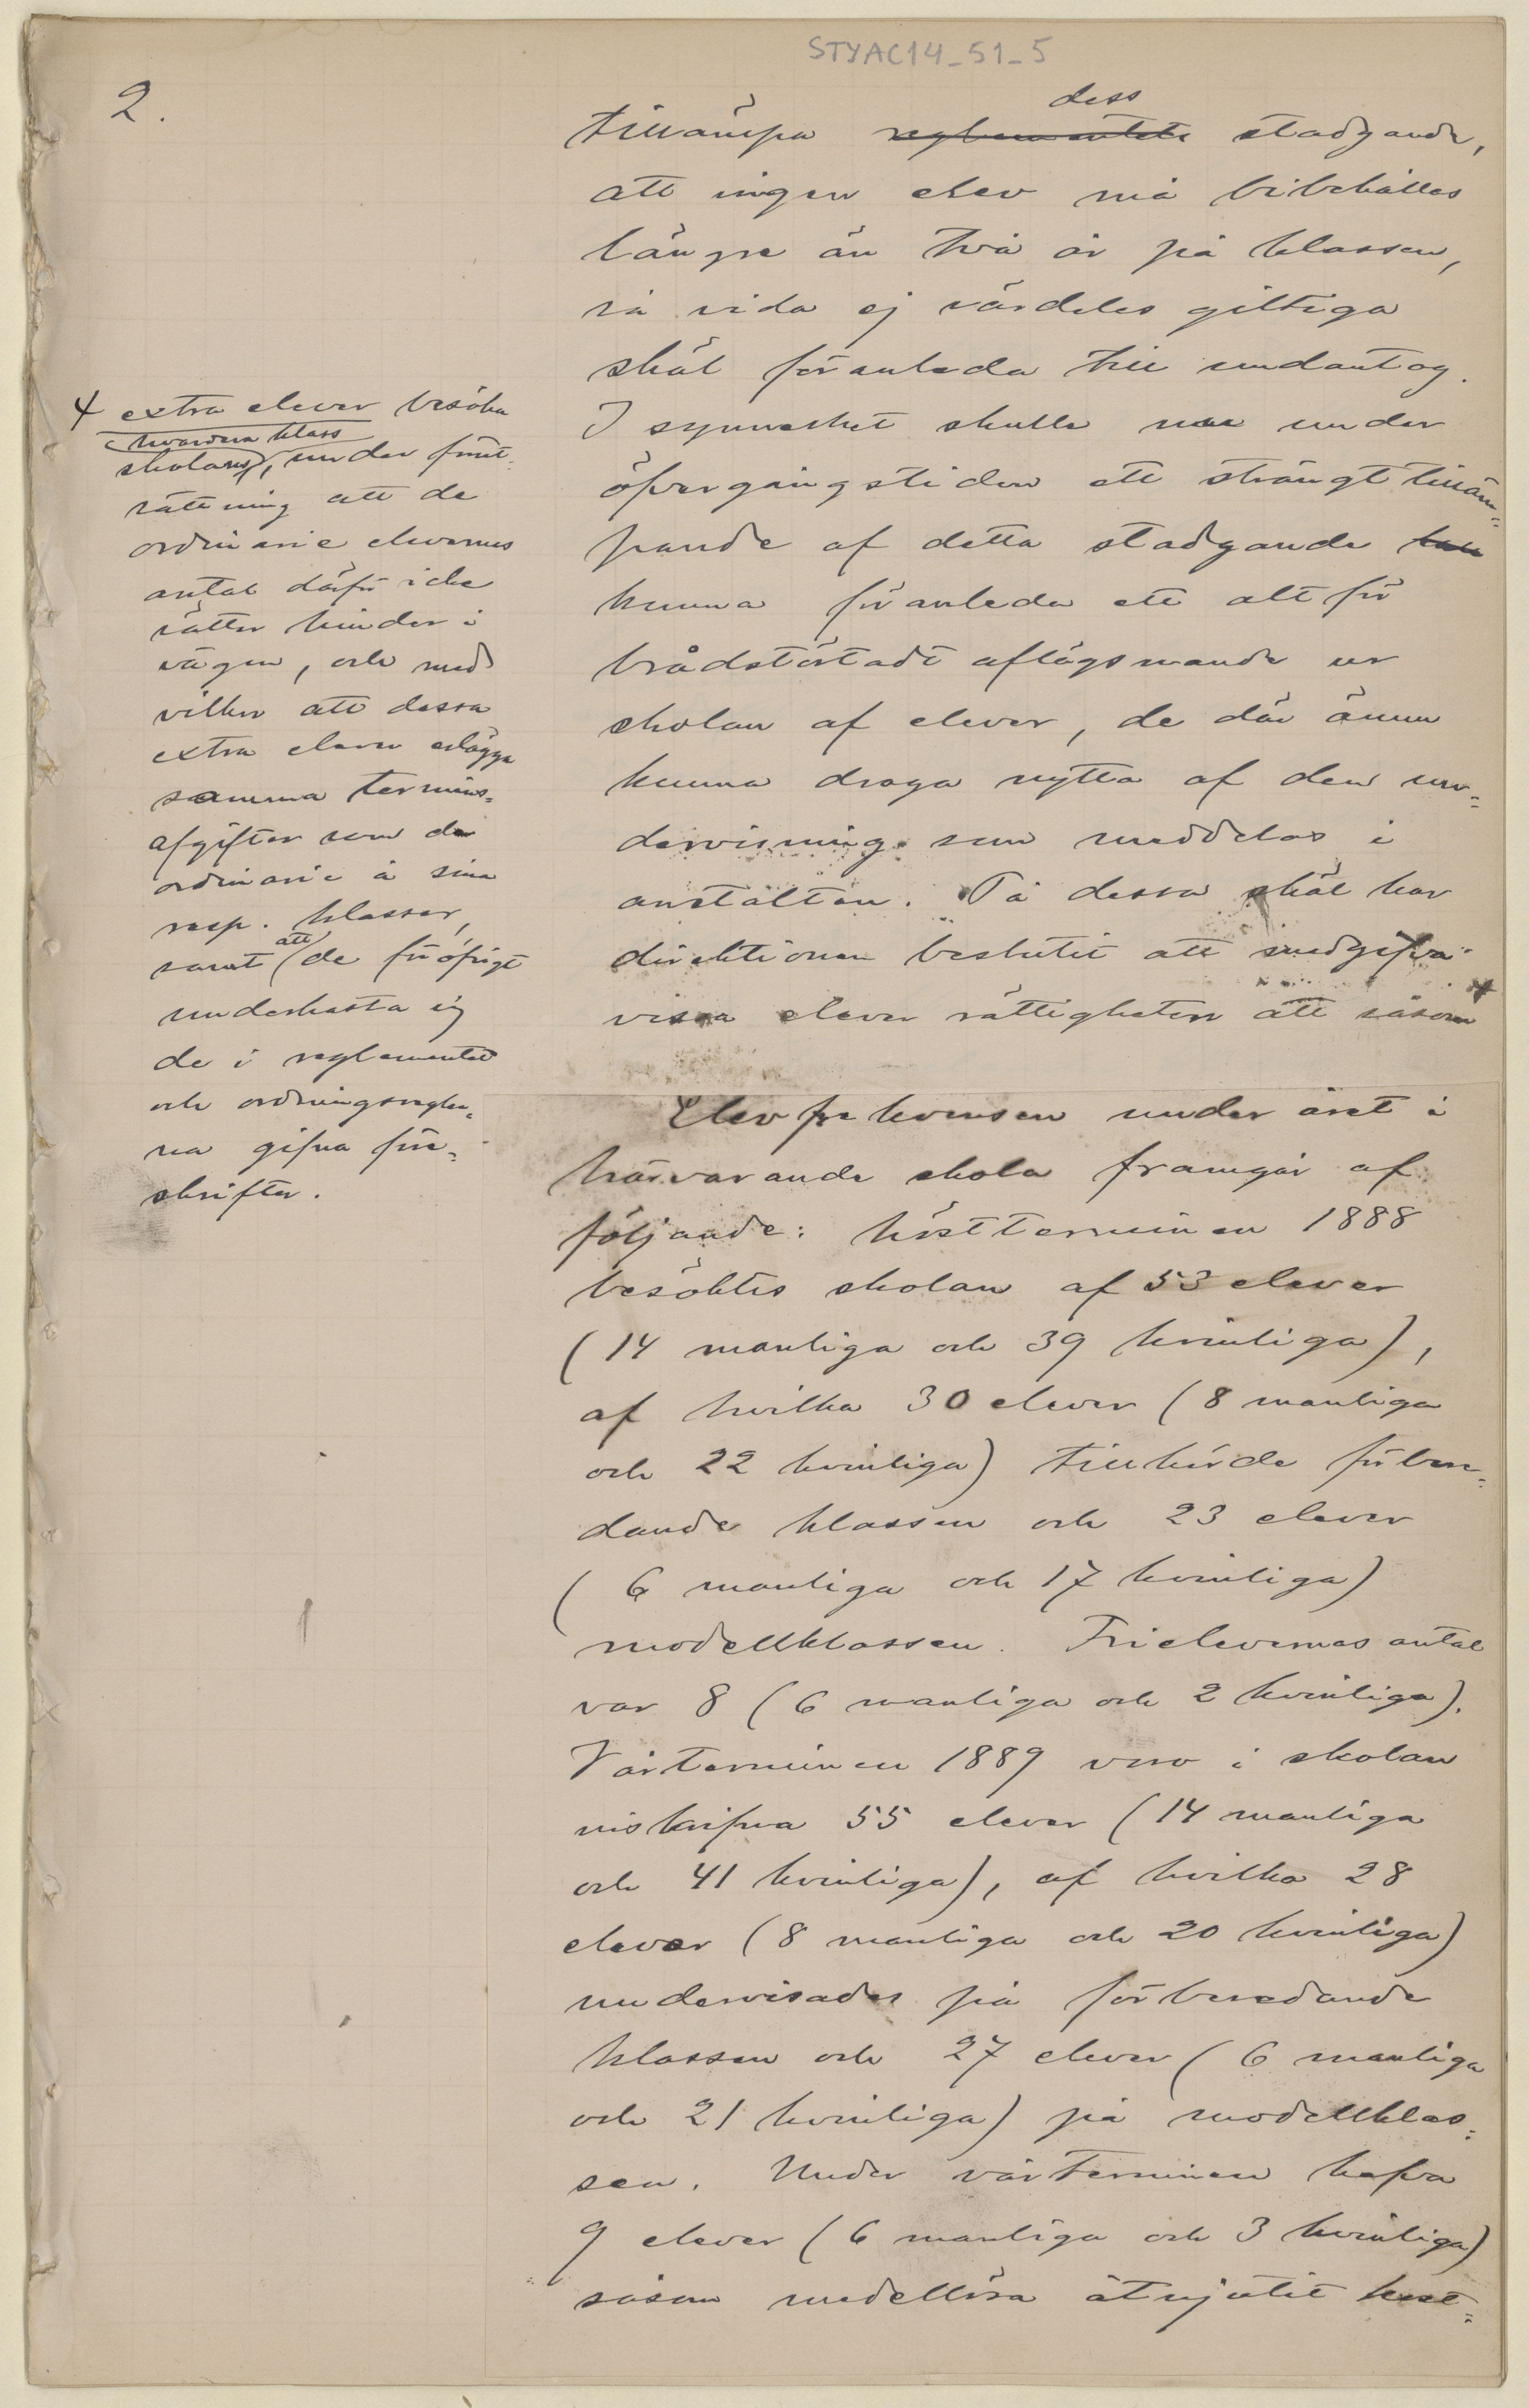 STYAC14_51_5
2.
dess
tillämpa reglementets stadgande,
att ingen elev må bibehållas
längre än två år på klassen,
så vida ej särdeles giltiga
skäl föranleda till undantag.
I synnerhet skulle nu under
öfvergångstiden ett strängt tilläm-
pande af detta stadgande
kunna föranleda ett allt för
brådstörtadt aflägsnande ur
skolan af elever, de där ännu
kunna draga nytta af den un-
dervisning som meddelas i
anstalten. På dessa skäl har
direktionen beslutit att medgifva
vissa elever rättigheten att såsom
extra elever besöka
hvardera klass
skolans, under förut-
sättning att de
ordinarie elevernas
antal därför icke
sätter hinder i
vägen, och med
vilkor att dessa
extra elever erlägga
samma termins-
afgifter som de
ordinarie å sina
resp. klasser,
att
samt de för öfrigt
underkasta sig
de i reglementet
och ordningsregler-
na gifna före-
skrifter.
Elevfrekvensen under året i
härvarande skola framgår af
följande: höstterminen 1888
besöktes skolan af 53 elever
(14 manliga och 39 kvinliga),
af hvilka 30 elever (8 manliga
och 22 kvinliga) tillhörde förbere-
dande klassen och 23 elever
(6 manliga och 17 kvinliga)
modellklassen. Frielevernas antal
var 8 (6 manliga och 2 kvinliga).
Vårterminen 1889 voro i skolan
inskrifna 55 elever (14 manliga
och 41 kvinliga), af hvilka 28
elever (8 manliga och 20 kvinliga)
undervisades på förberedande
klassen och 27 elever (6 manliga
och 21 kvinliga) på modellklas-
sen. Under vårterminen hafva
9 elever (6 manliga och 3 kvinliga)
såsom medellösa åtnjutit kost-